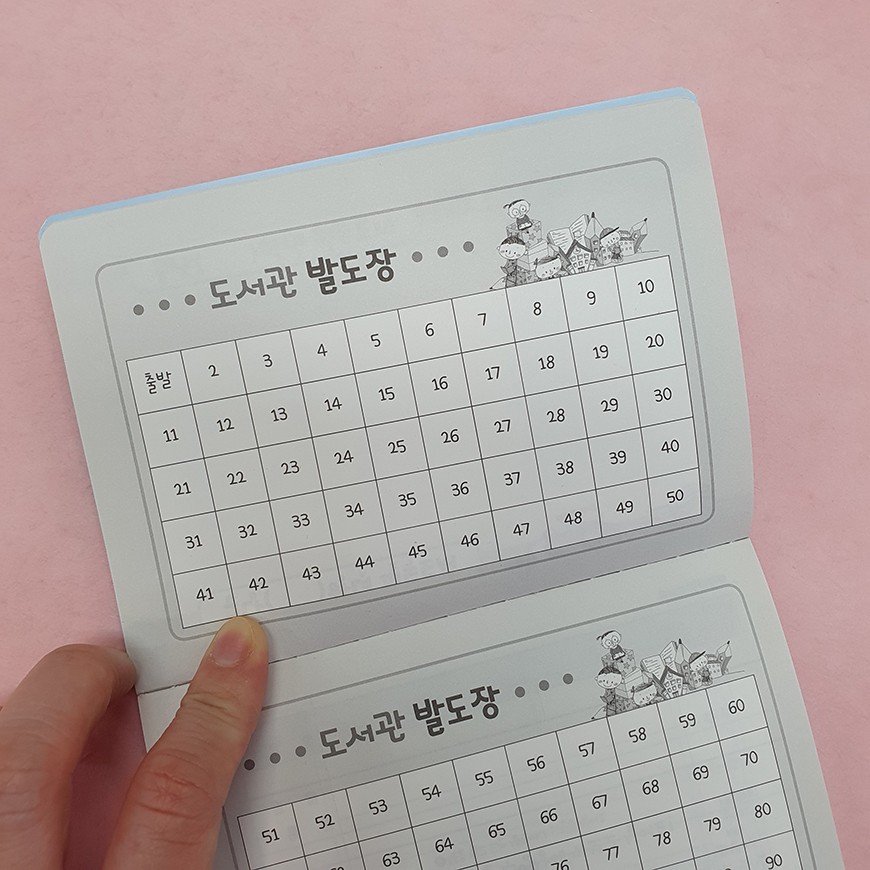 도서관 발도장
출발 2 3 4 5 6 7 8 9 10
11 12 13 14 15 16 17 18 19 20
21 22 23 24 25 26 27 28 29 30
31 32 33 34 35 36 37 38 39 40
41 42 43 44 45 46 47 48 49 50
도서관 발도장
51 52 53 54 55 56 57 58 59 60
63 64 65 66 67 68 69 70
76 77 78 79 80
90